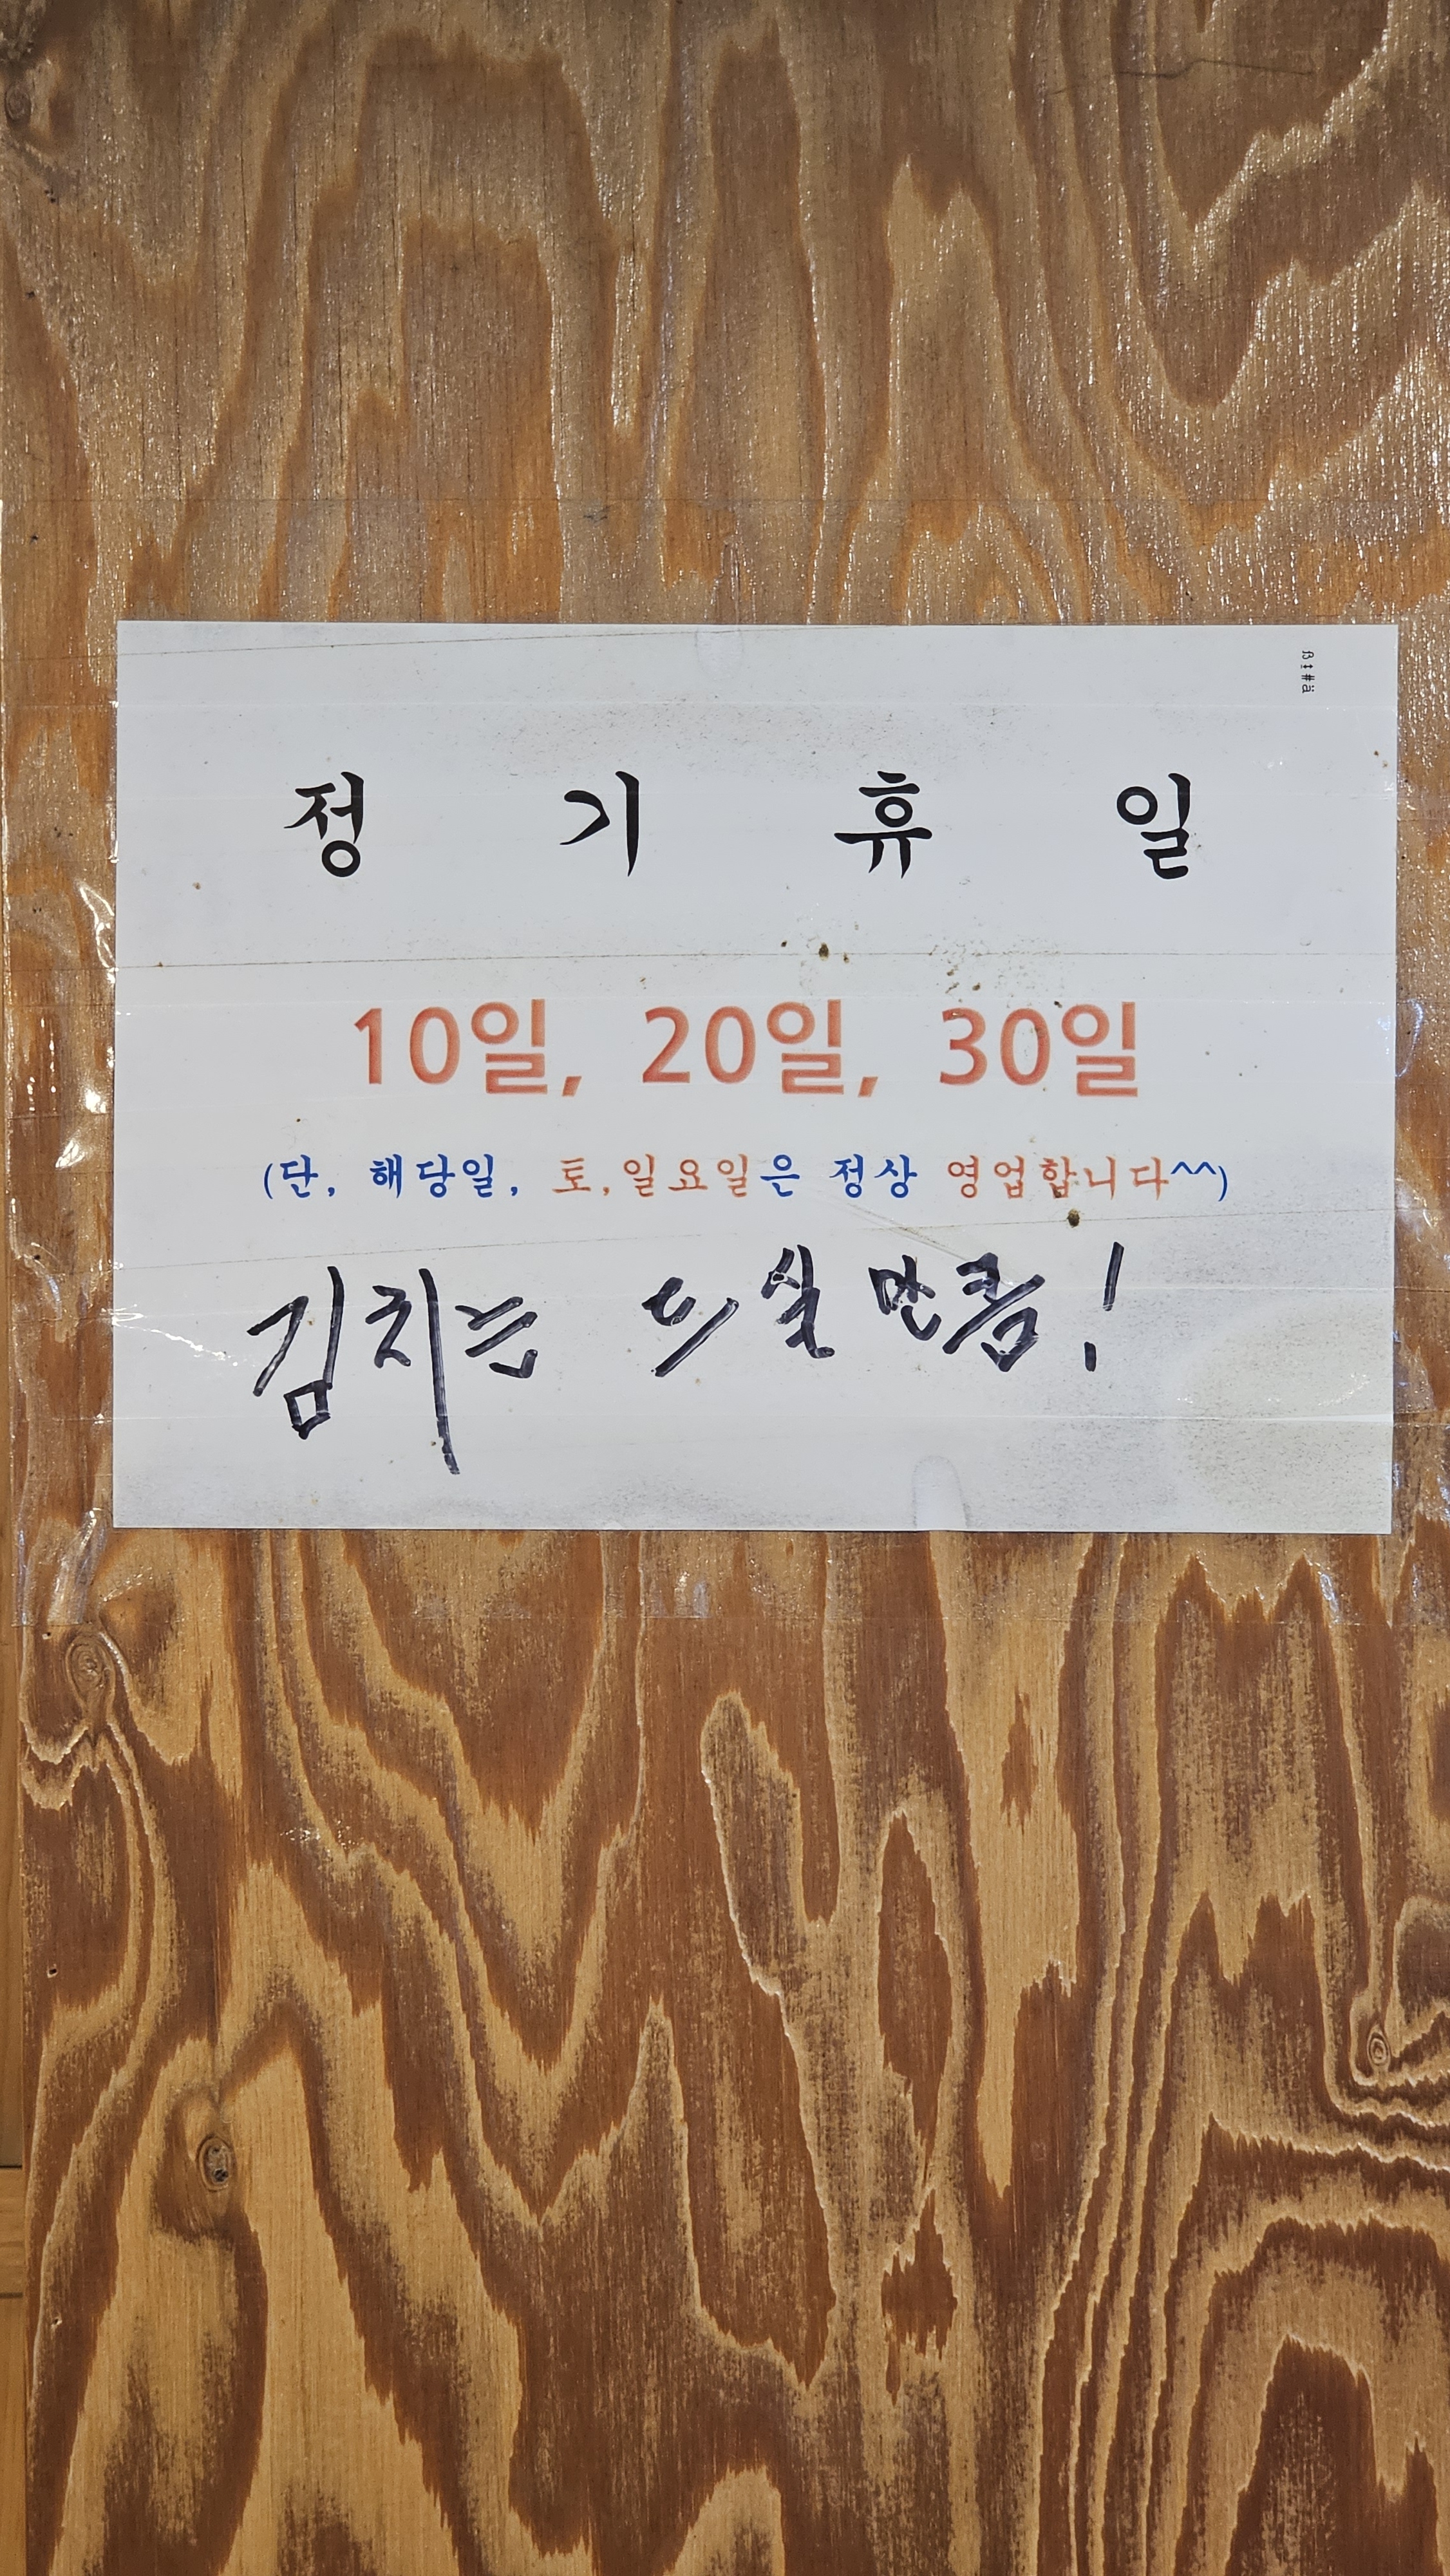 정 기 휴 일
10일, 20일, 30일
(단, 해당일, 토,일요일은 정상 영업합니다^^)
김치는 드실만큼!